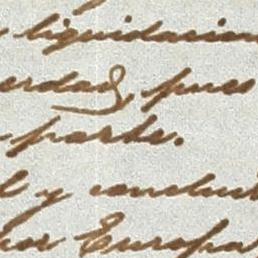 liquidacion
erdad pues
parte.
l y conclui
por Europa